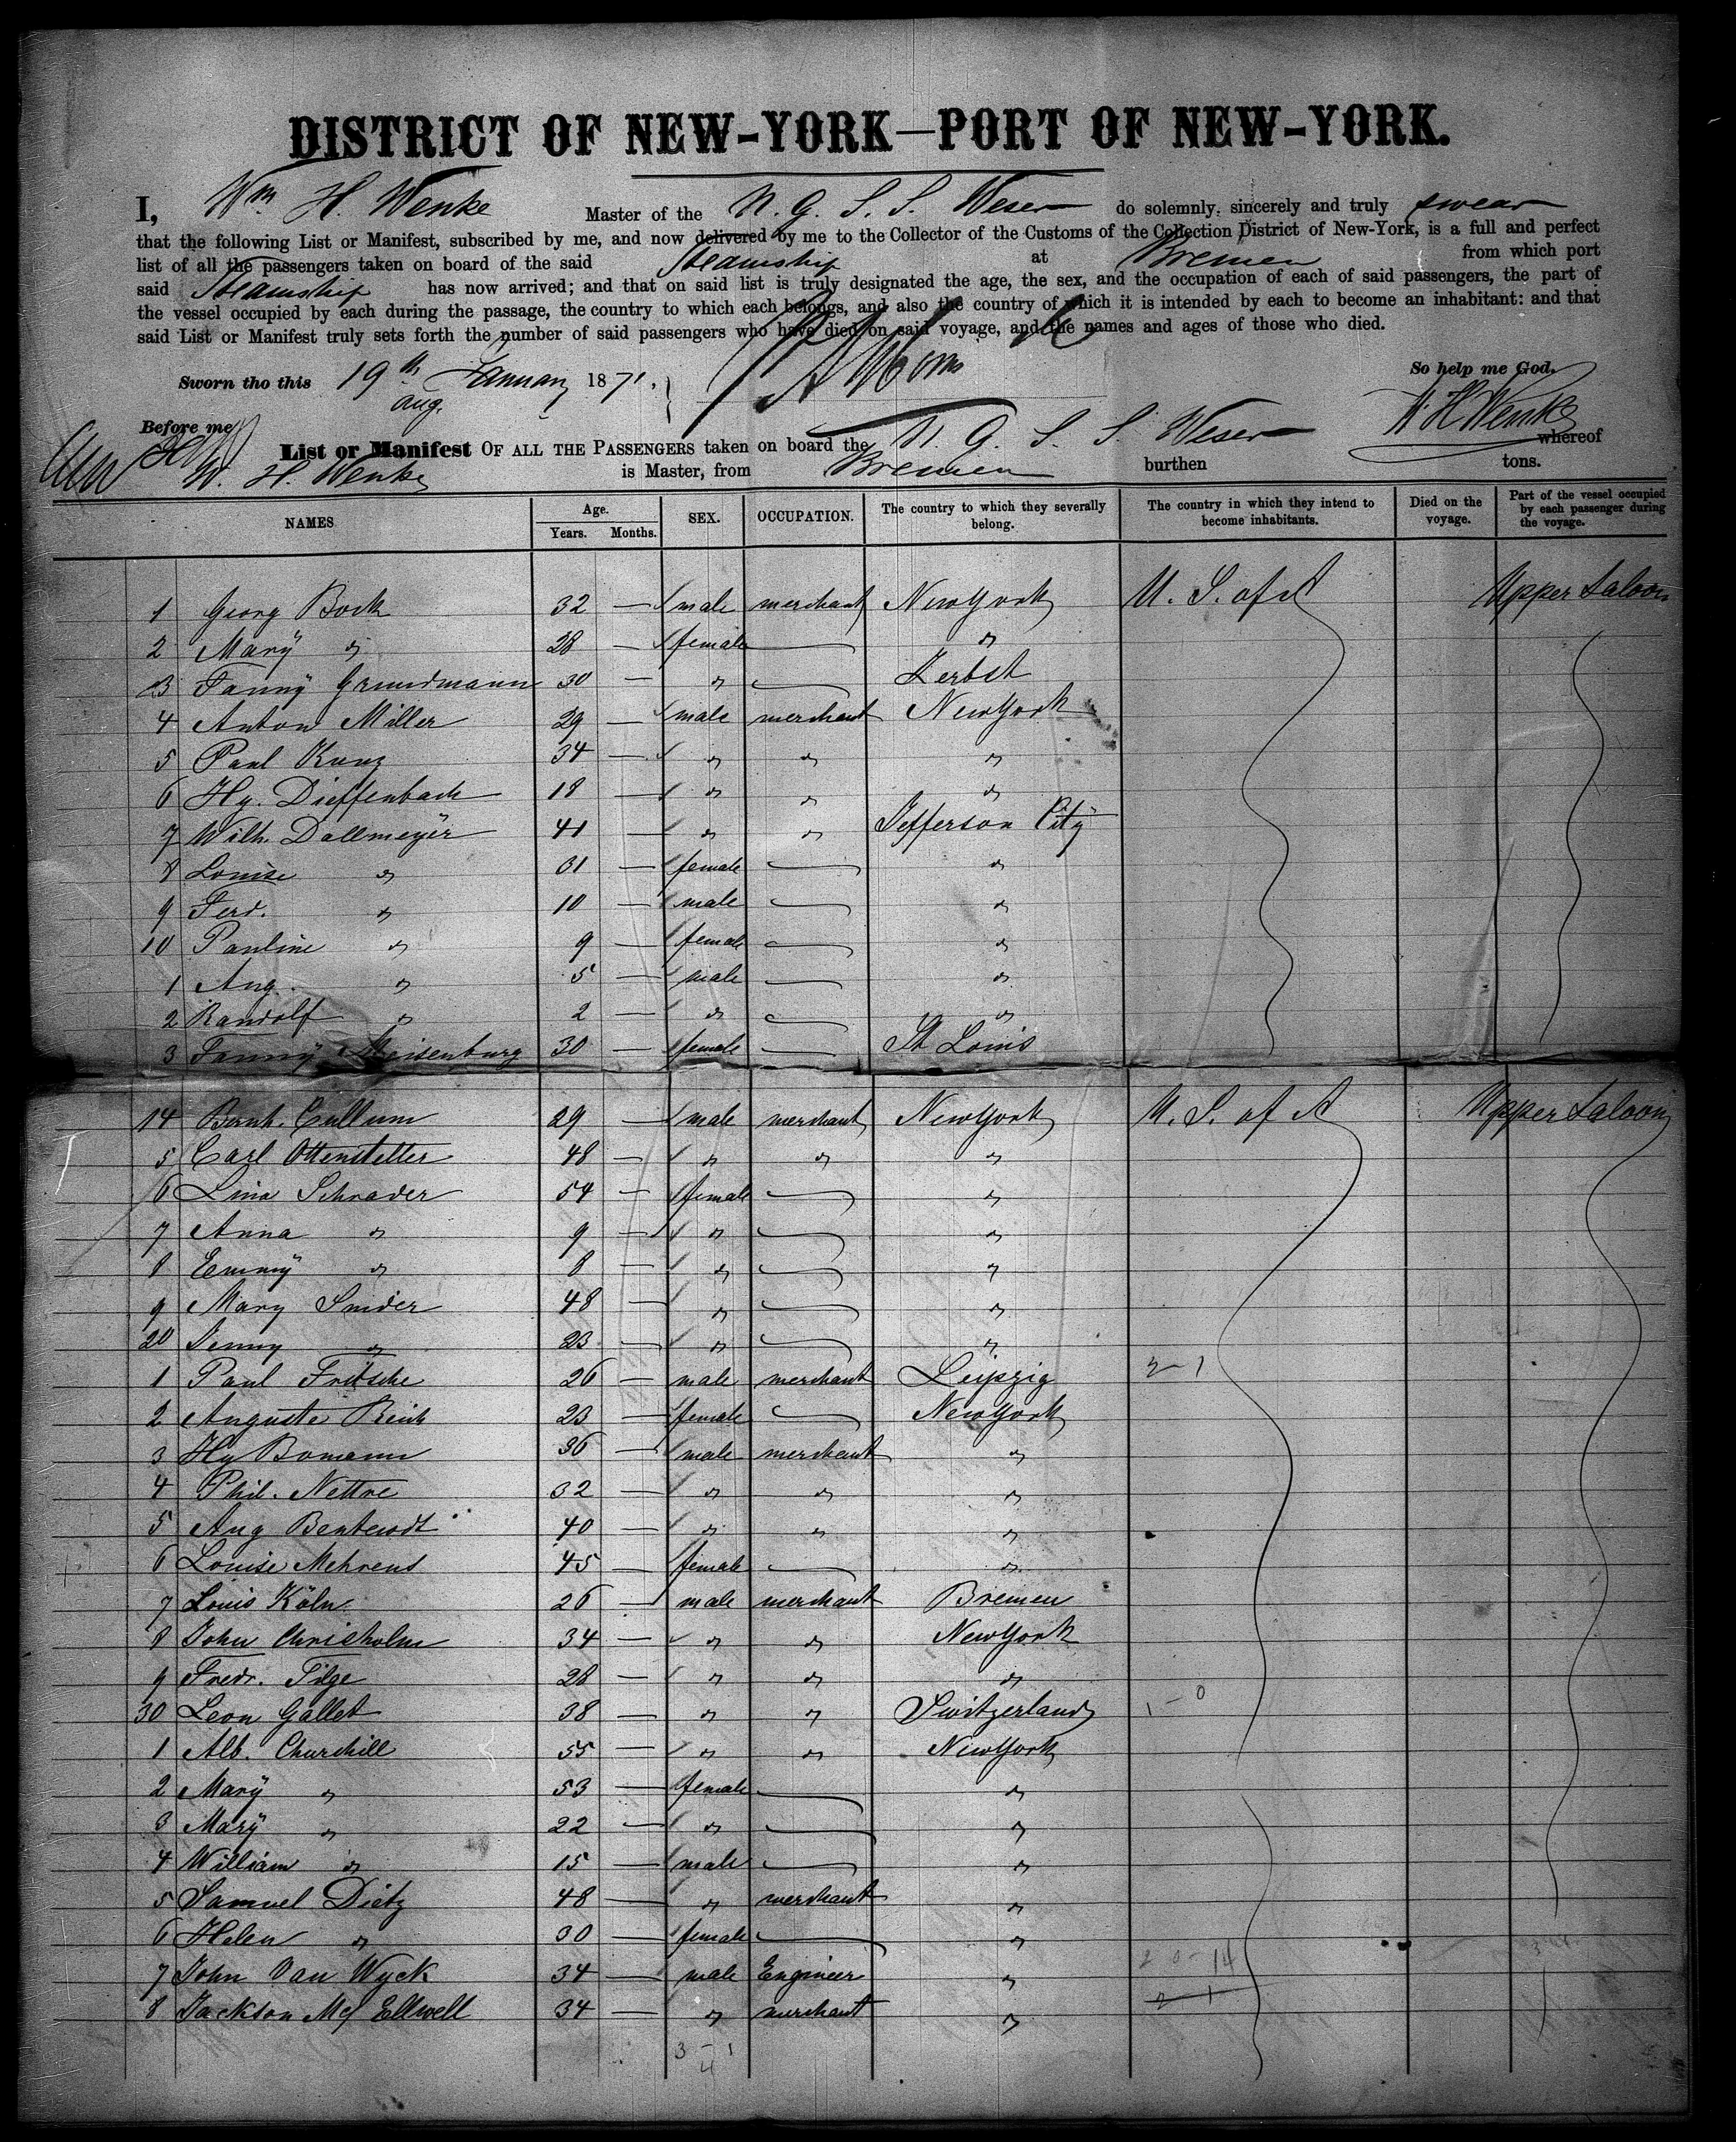 DISTRICT OF NEW-YORK—PORT OF NEW-YORK.
I, Wm H. Wenke Master of the N. G. S. S. Weser do solemnly, sincerely and truly swear
that the following List or Manifest, subscribed by me, and now delivered by me to the Collector of the Customs of the Collection District of New-York, is a full and perfect
list of all the passengers taken on board of the said Steamship at Bremen from which port
said Steamship has now arrived; and that on said list is truly designated the age, the sex, and the occupation of each of said passengers, the part of
the vessel occupied by each during the passage, the country to which each belongs, and also the country of which it is intended by each to become an inhabitant: and that
said List or Manifest truly sets forth the number of said passengers who have died on said voyage, and the names and ages of those who died.
So help me God.
Sworn tho this 19th January 1871.
aug.
W. H. Wenke
Before me
List or Manifest OF ALL THE PASSENGERS taken on board the N. G. S. S. Weser whereof
W. H. Wenke is Master, from Bremen burthen tons.
NAMES Age. Years. Months. SEX. OCCUPATION. The country to which they severally belong. The country in which they intend to become inhabitants. Died on the voyage. Part of the vessel occupied by each passenger during the voyage.
1 Georg Bock 32 — male merchant New York U. S. of A Upper Saloon
2 Mary " 28 — female — "
3 Fanny Grundmann 30 — " — Zerbst
4 Anton Miller 29 — male merchant New York
5 Paul Kunz 34 — " " "
6 Hy. Dieffenbach 18 — " " "
7 Wilh. Dallmeyer 41 — " " Jefferson City
8 Louise " 31 — female — "
9 Ferd. " 10 — male — "
10 Pauline " 9 — female — "
1 Aug. " 5 — male — "
2 Randolf " 2 — " — "
3 Fanny 30 — female — St Louis
14 Bernh. Cullum 29 — male merchant New York U. S. of A Upper Saloon
5 Carl Ottenstetter 48 — " " "
6 Lina Schrader 54 — female — "
7 Anna " 9 — " — "
8 Emmy " 8 — " — "
9 Mary Snider 48 — " — "
20 Jenny " 23 — " — "
1 Paul Fritsche 26 — male merchant Leipzig
2 Auguste 23 — female — New York
3 Hy Bomann 36 — male merchant "
4 Phil. Nettre 32 — " " "
5 Aug 40 — " " "
6 Louise Mehrens 45 — female — "
7 Louis Köln 26 — male merchant Bremen
8 John Chrisholm 34 — " " New York
9 Fredr. Tilge 28 — " " "
30 Leon Gallet 38 — " " Switzerland 1 - 0
1 Alb. Churchill 55 — " " New York
2 Mary " 53 — female — "
3 Mary " 22 — " — "
4 William " 15 — male — "
5 Samuel Dietz 48 — " merchant "
6 Helen " 30 — female — "
7 John Van Wyck 34 — male Engineer " 20 - 14
8 Jackson Mc Ellwell 34 — " merchant "
3 - 1
4